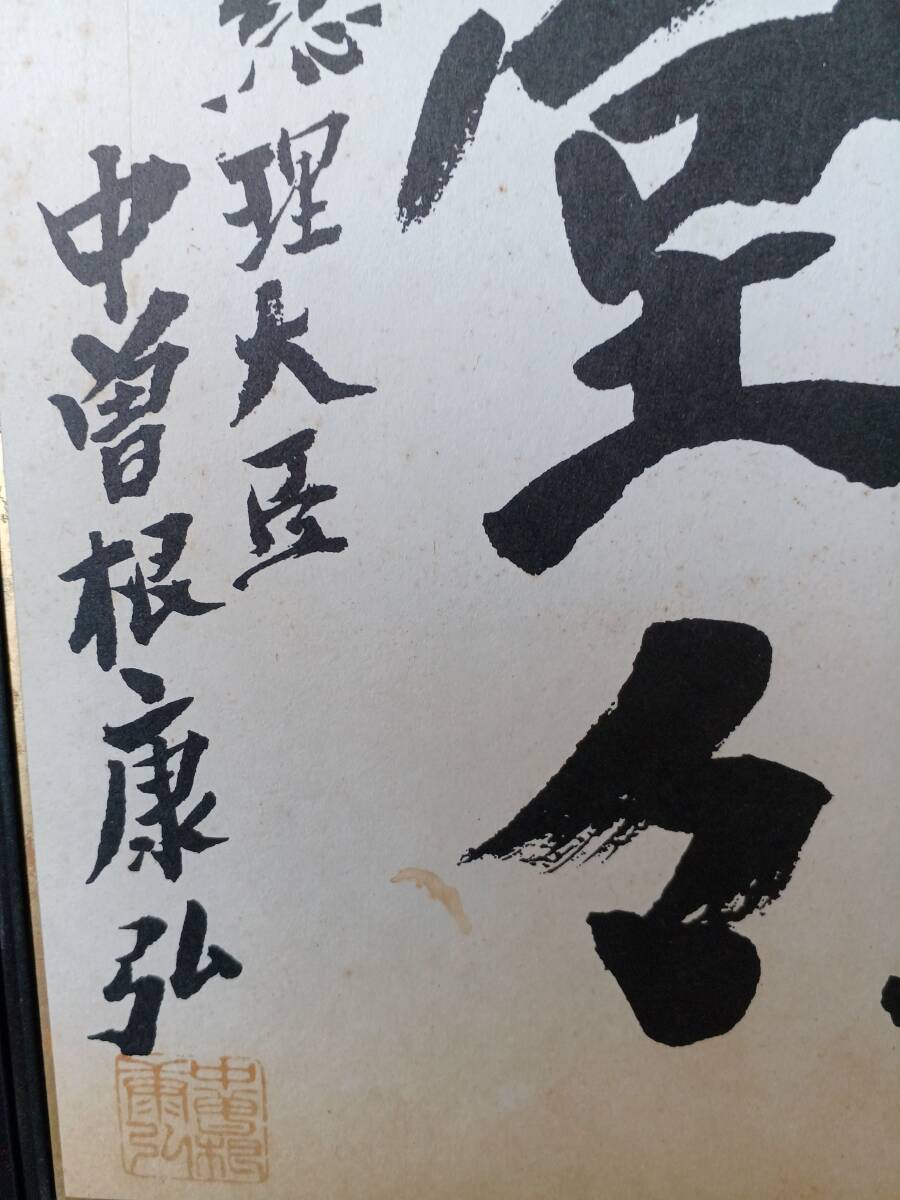 堂々
総理大臣
中曽根康弘
中曽根
康弘